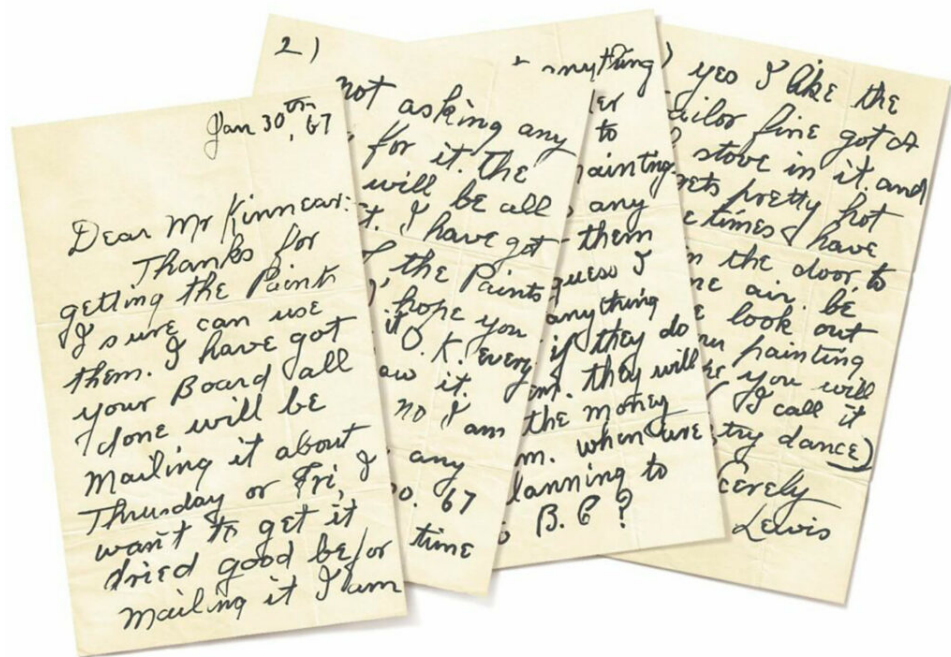 Jan 30th, 67
Dear Mr Kinnear:
Thanks for
getting the Paints
I sure can use
them. I have got
your Board all
done will be
Mailing it about
Thrusday or Fri, I
want to get it
dried good befor
Mailing it I am
2)
not asking any
for it. the
will be all
t. I have got
the Paints
hope you
it O.K. every
aw it.
no I am
any
o. 67
time
+ anything
er
to
ainting
any
them
guess I
anything
if they do
em. they will
the money
m. when are
lanning to
B.C?
) yes I like the
ailor fine got a
stove in it. and
gets pretty hot
etimes I have
n the door, to
me air. be
e look out
our painting
you will
I call it
try dance)
cerely
Lewis